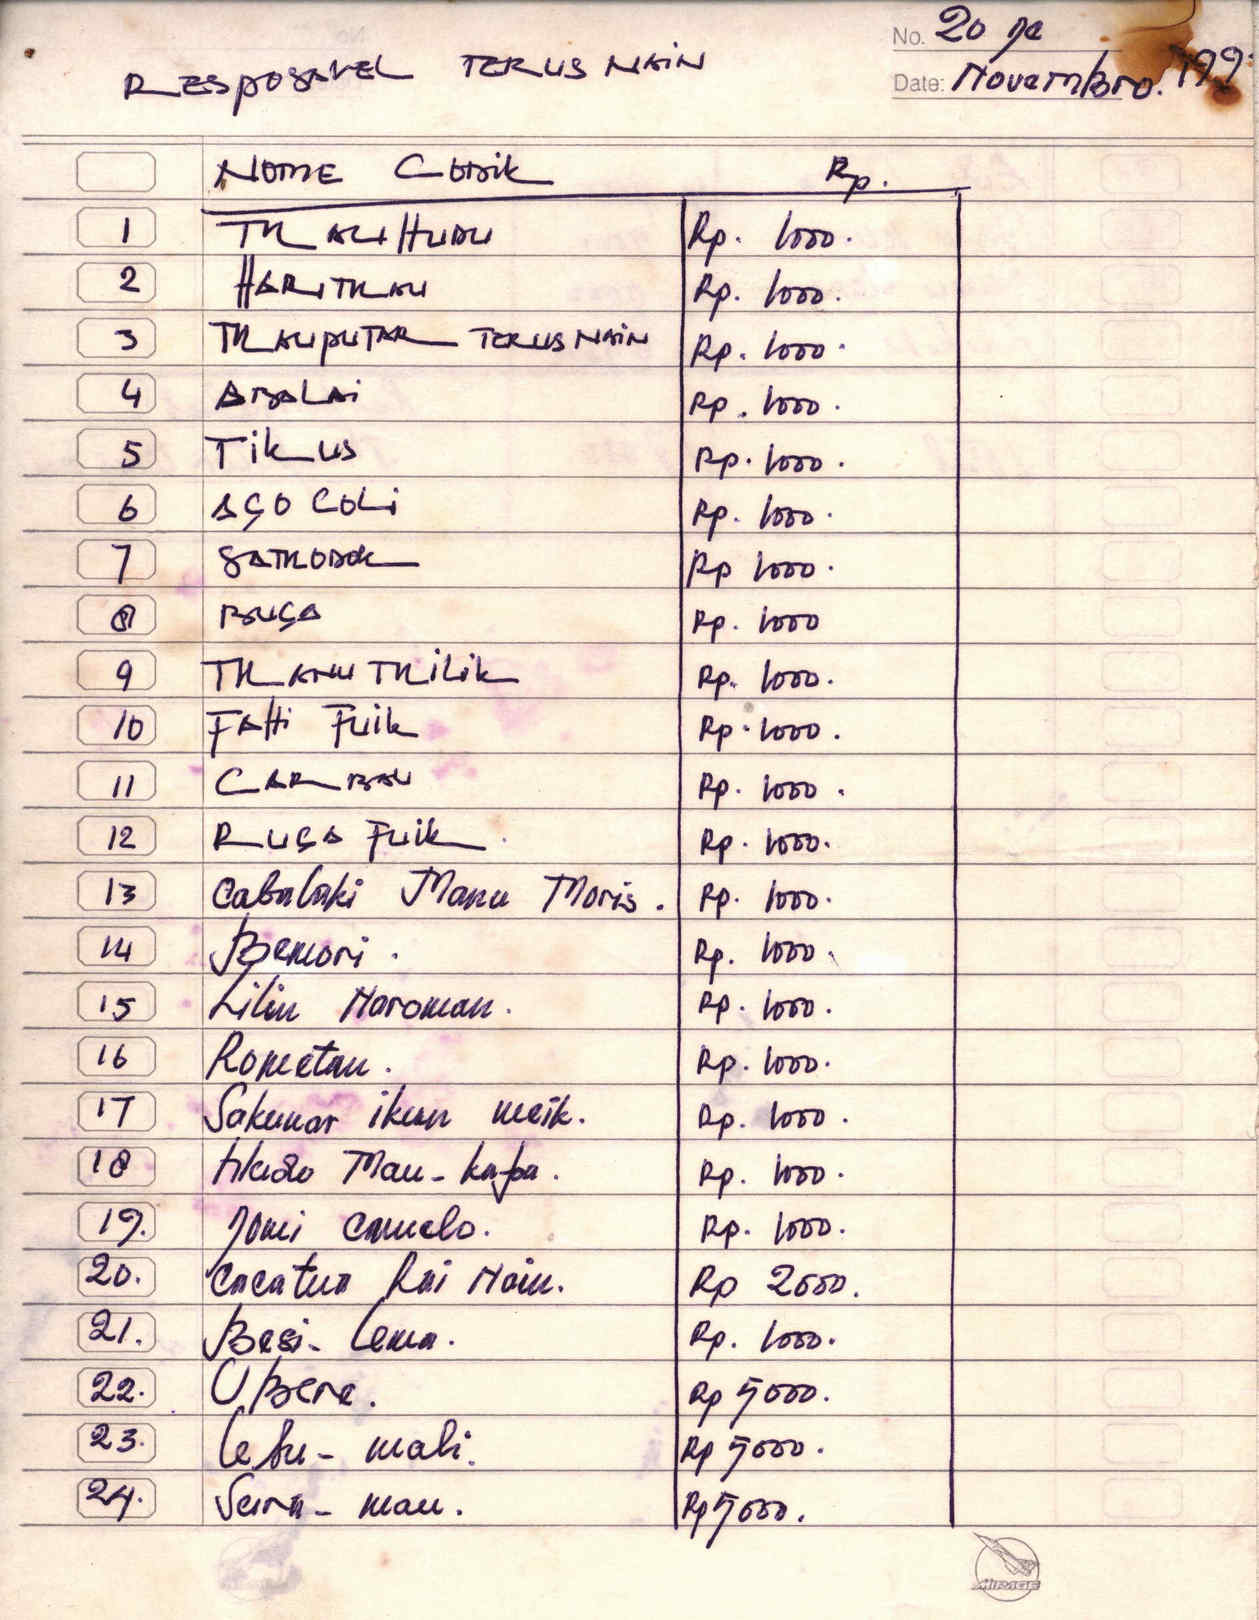 No. 20 de
RESPOSAVEL TERUS NAIN
Date: Novembro. 199
NOME CODIK Rp.
1 Rp. 1000.
2 Rp. 1000.
3 TERUS NAIN Rp. 1000.
4 Rp. 1000.
5 TikUS Rp. 1000.
6 AÇO COLi Rp. 1000.
7 Rp 1000.
8 BUÇA Rp. 1000
9 Rp. 1000.
10 FAHi FUik Rp. 1000.
11 CARBAU Rp. 1000.
12 RUÇA FUik Rp. 1000.
13 Cabalaki Manu Moris. Rp. 1000.
14 Bemori. Rp. 1000.
15 Lilin Naroman. Rp. 1000.
16 Rometan. Rp. 1000.
17 Sakunar ikun meik. Rp. 1000.
18 Mau-kafa. Rp. 1000.
19. Camelo. Rp. 1000.
20. Cacatua Rai Nain. Rp 2000.
21. Besi-Lema. Rp. 1000.
22. UBere. Rp 5000.
23. Lebu-mali. Rp 5000.
24. mau. Rp 5000.
MIRAGE